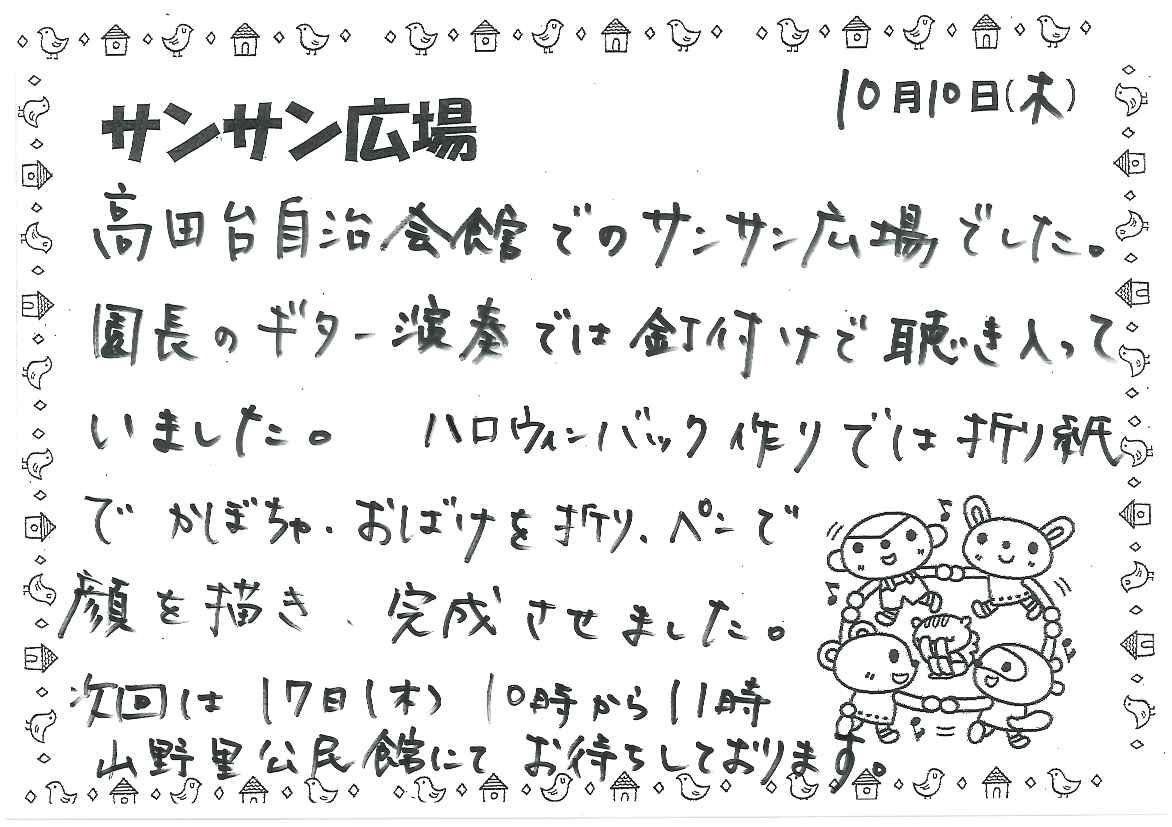 10月10日(木)
サンサン広場
高田台自治会館でのサンサン広場でした。
園長のギター演奏では釘付けで聴き入って
いました。 ハロウィンバック作りでは折り紙
で かぼちゃ、おばけを折り、ペンで
顔を描き、完成させました。
次回は 17日(木) 10時から11時
山野里公民館にて お待ちしております。